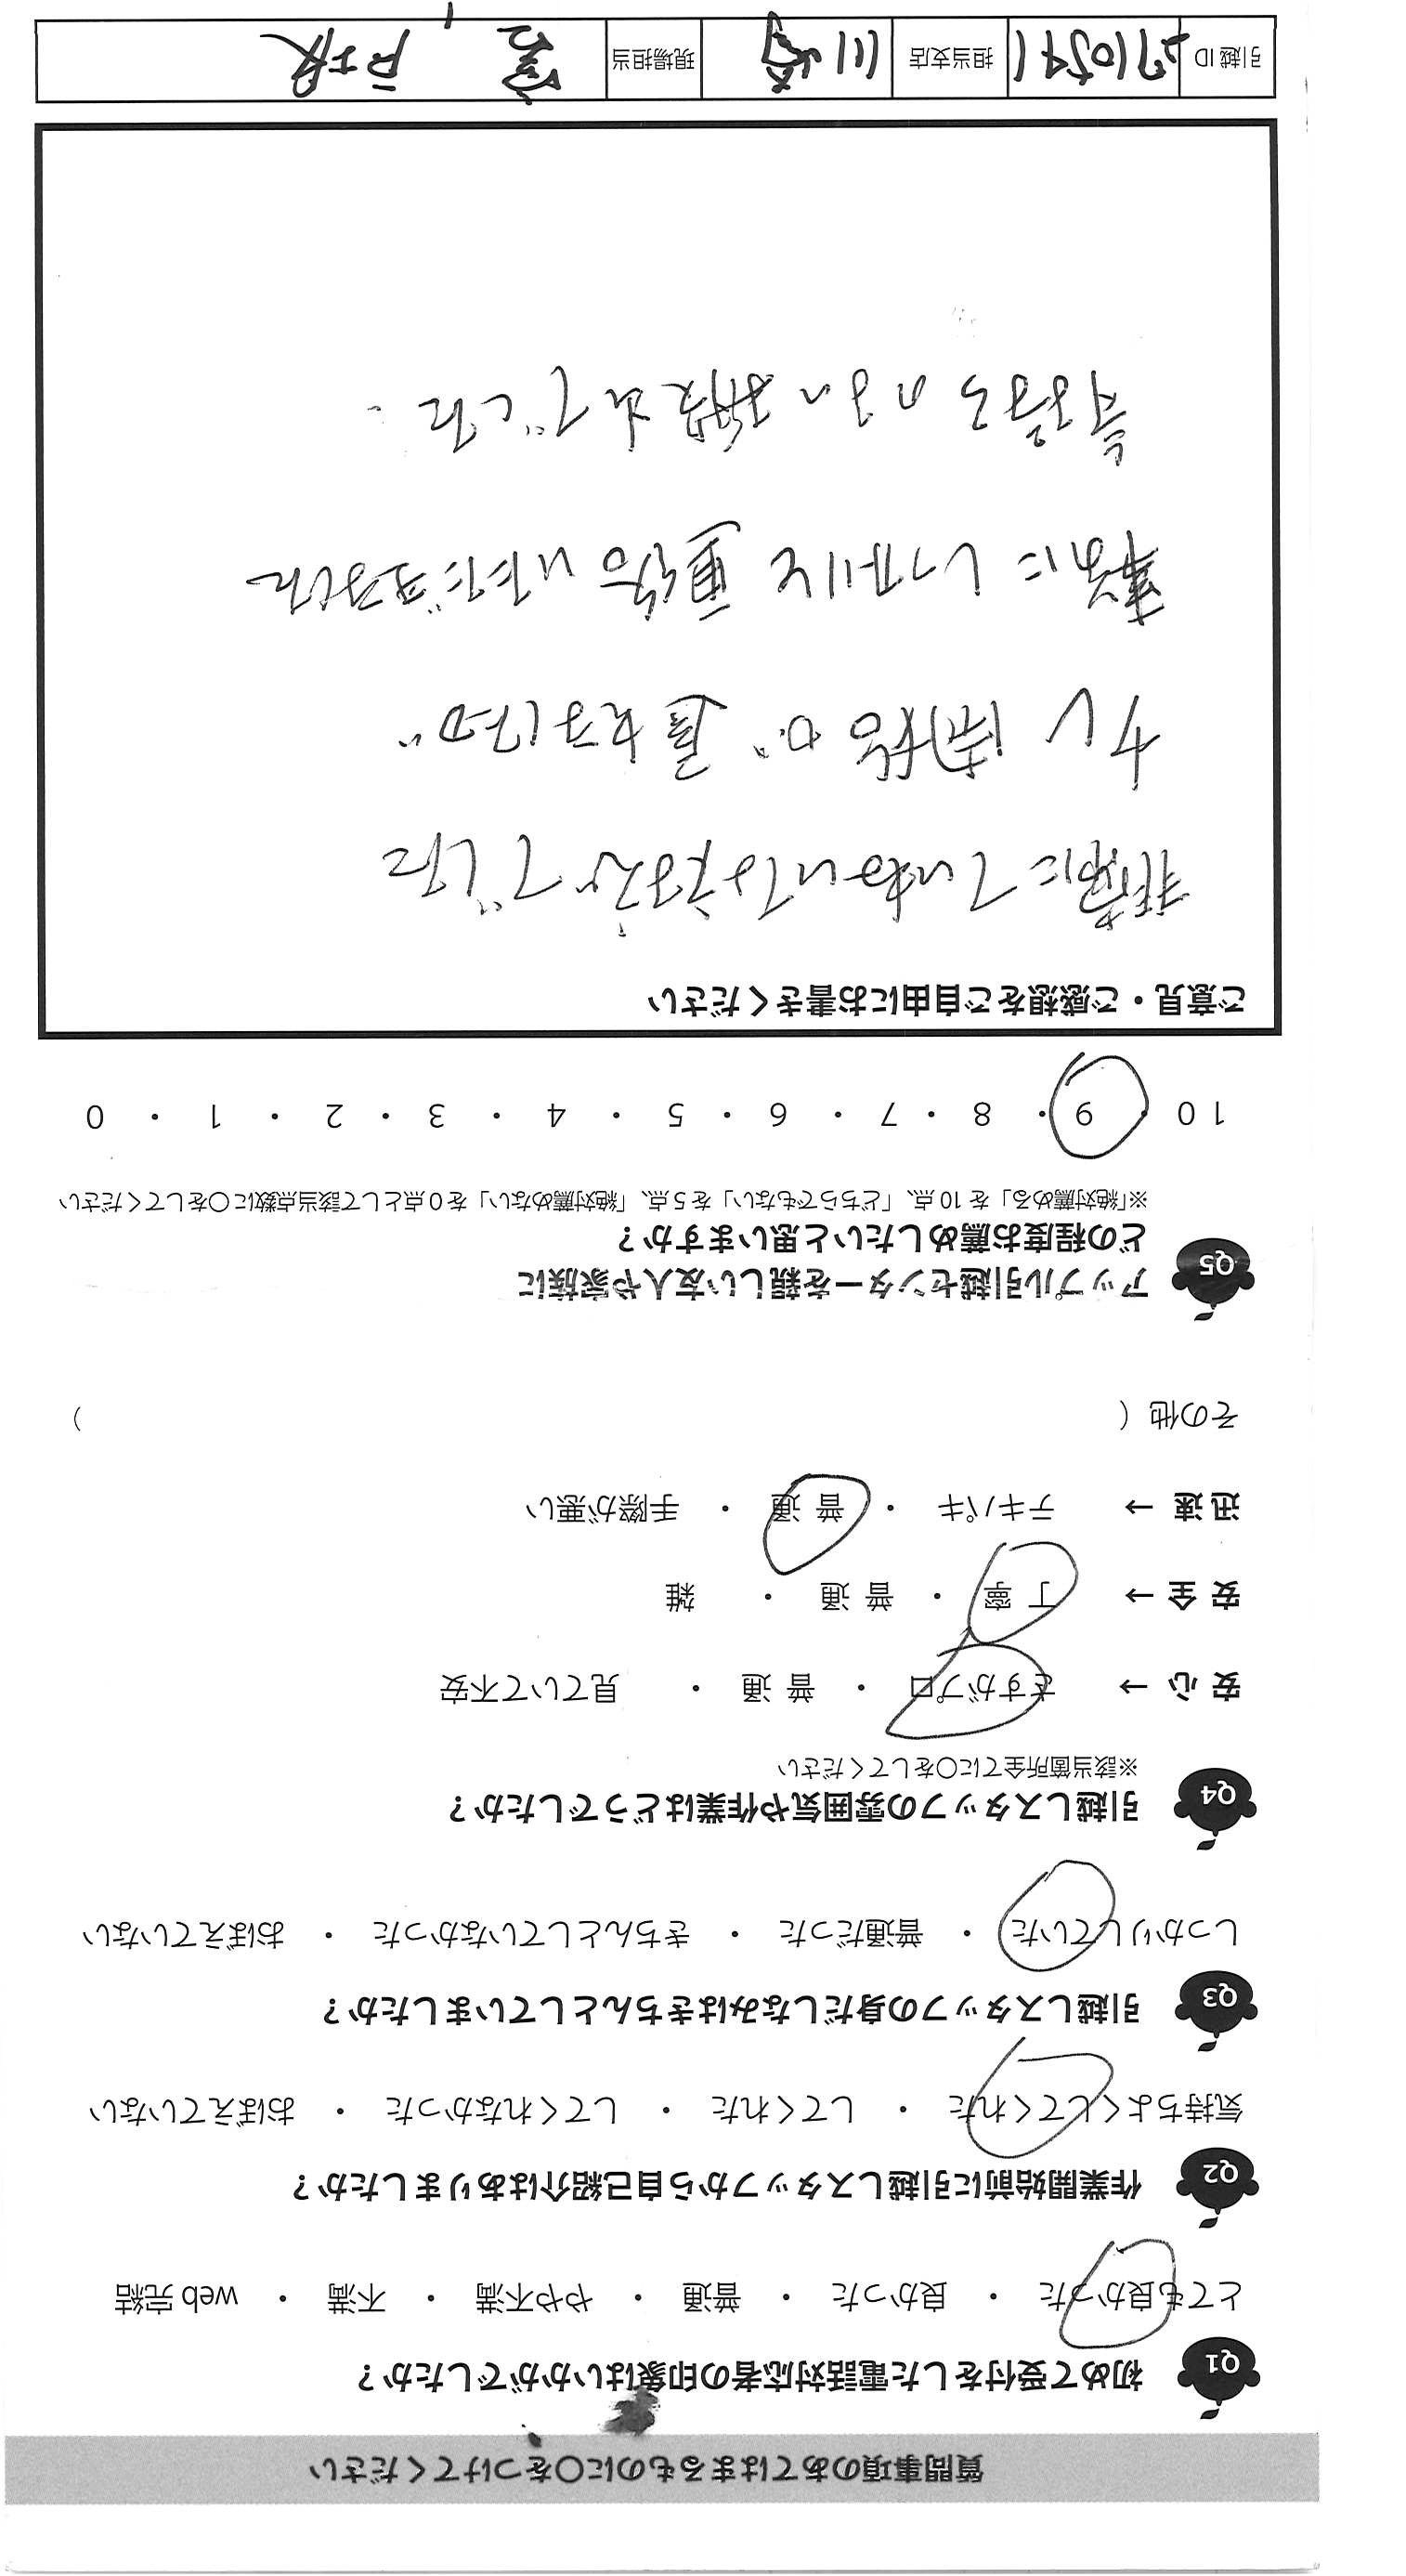 質問事項のあてはまるものに○をつけてください
Q1 初めて受付をした電話対応者の印象はいかがでしたか？
とても良かった ・ 良かった ・ 普通 ・ やや不満 ・ 不満 ・ web 完結
Q2 作業開始前に引越しスタッフから自己紹介はありましたか？
気持ちよくしてくれた ・ してくれた ・ してくれなかった ・ おぼえていない
Q3 引越しスタッフの身だしなみはきちんとしていましたか？
しっかりしていた ・ 普通だった ・ きちんとしていなかった ・ おぼえていない
Q4 引越しスタッフの雰囲気や作業はどうでしたか？
※該当箇所全てに○をしてください
安 心 → さすがプロ ・ 普 通 ・ 見ていて不安
安 全 → 丁 寧 ・ 普 通 ・ 雑
迅 速 → テキパキ ・ 普 通 ・ 手際が悪い
その他（ ）
Q5 アップル引越センターを親しい友人や家族に
どの程度お薦めしたいと思いますか？
※「絶対薦める」を 10 点、「どちらでもない」を 5 点、「絶対薦めない」を 0 点として該当点数に○をしてください
10 ・ 9 ・ 8 ・ 7 ・ 6 ・ 5 ・ 4 ・ 3 ・ 2 ・ 1 ・ 0
ご意見・ご感想をご自由にお書きください
非常にていねいな
少し 開始が 遅れましたが
事前にしっかりと連絡いただきました
でした
引越 ID 担当支店 川崎 現場担当